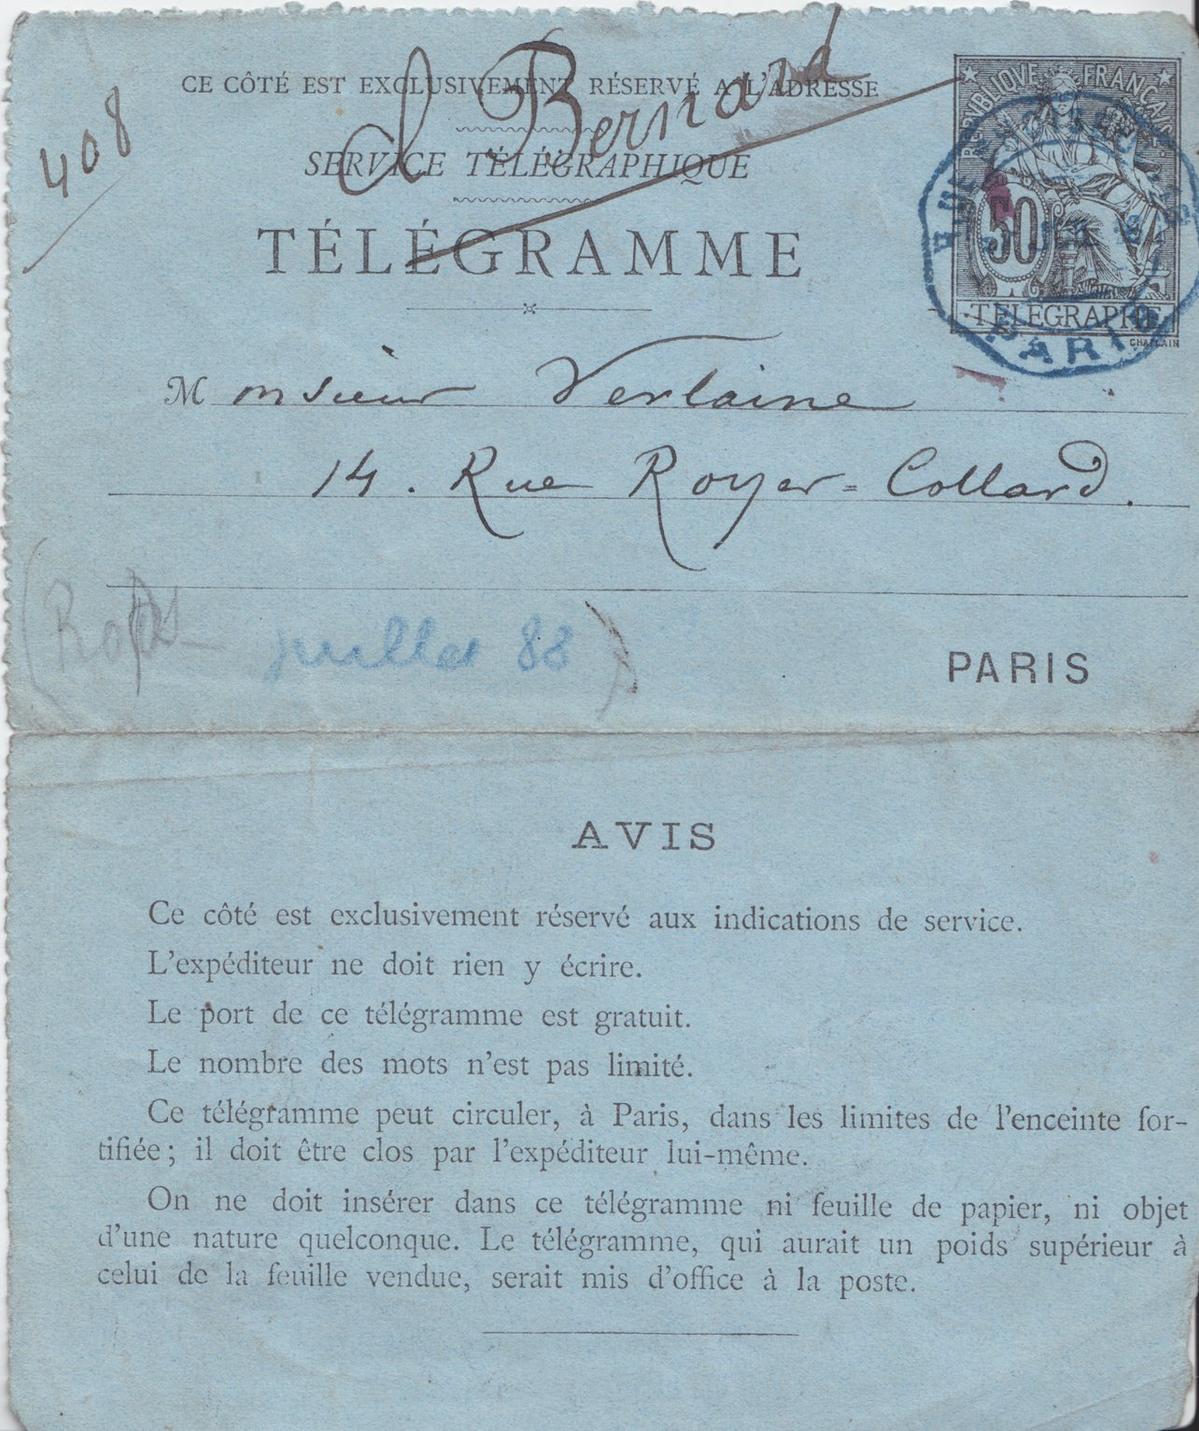 408
Cl Bernard
CE CÔTÉ EST EXCLUSIVEMENT RÉSERVÉ A L'ADRESSE
SERVICE TÉLÉGRAPHIQUE
TÉLÉGRAMME
REPUBLIQUE FRANÇAISE
50
TÉLÉGRAPHE
CHAPLAIN
PARIS
Monsieur Verlaine
14. Rue Royer-Collard.
(Rops juillet 88)
PARIS
AVIS
Ce côté est exclusivement réservé aux indications de service.
L'expéditeur ne doit rien y écrire.
Le port de ce télégramme est gratuit.
Le nombre des mots n'est pas limité.
Ce télégramme peut circuler, à Paris, dans les limites de l'enceinte for-
tifiée; il doit être clos par l'expéditeur lui-même.
On ne doit insérer dans ce télégramme ni feuille de papier, ni objet
d'une nature quelconque. Le télégramme, qui aurait un poids supérieur à
celui de la feuille vendue, serait mis d'office à la poste.